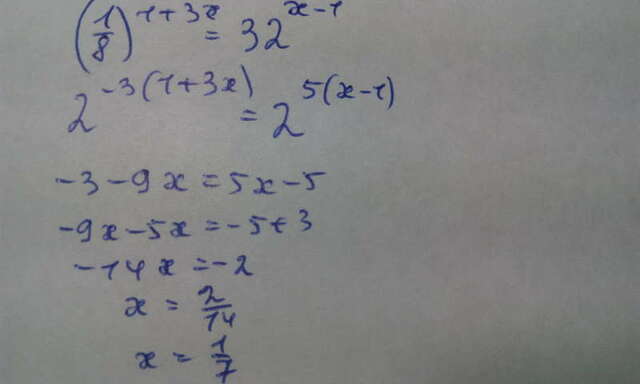 (1/8)^(1+3x) = 32^(x-1)
2^(-3(1+3x)) = 2^(5(x-1))
-3-9x=5x-5
-9x-5x=-5+3
-14x=-2
x = 2/14
x = 1/7